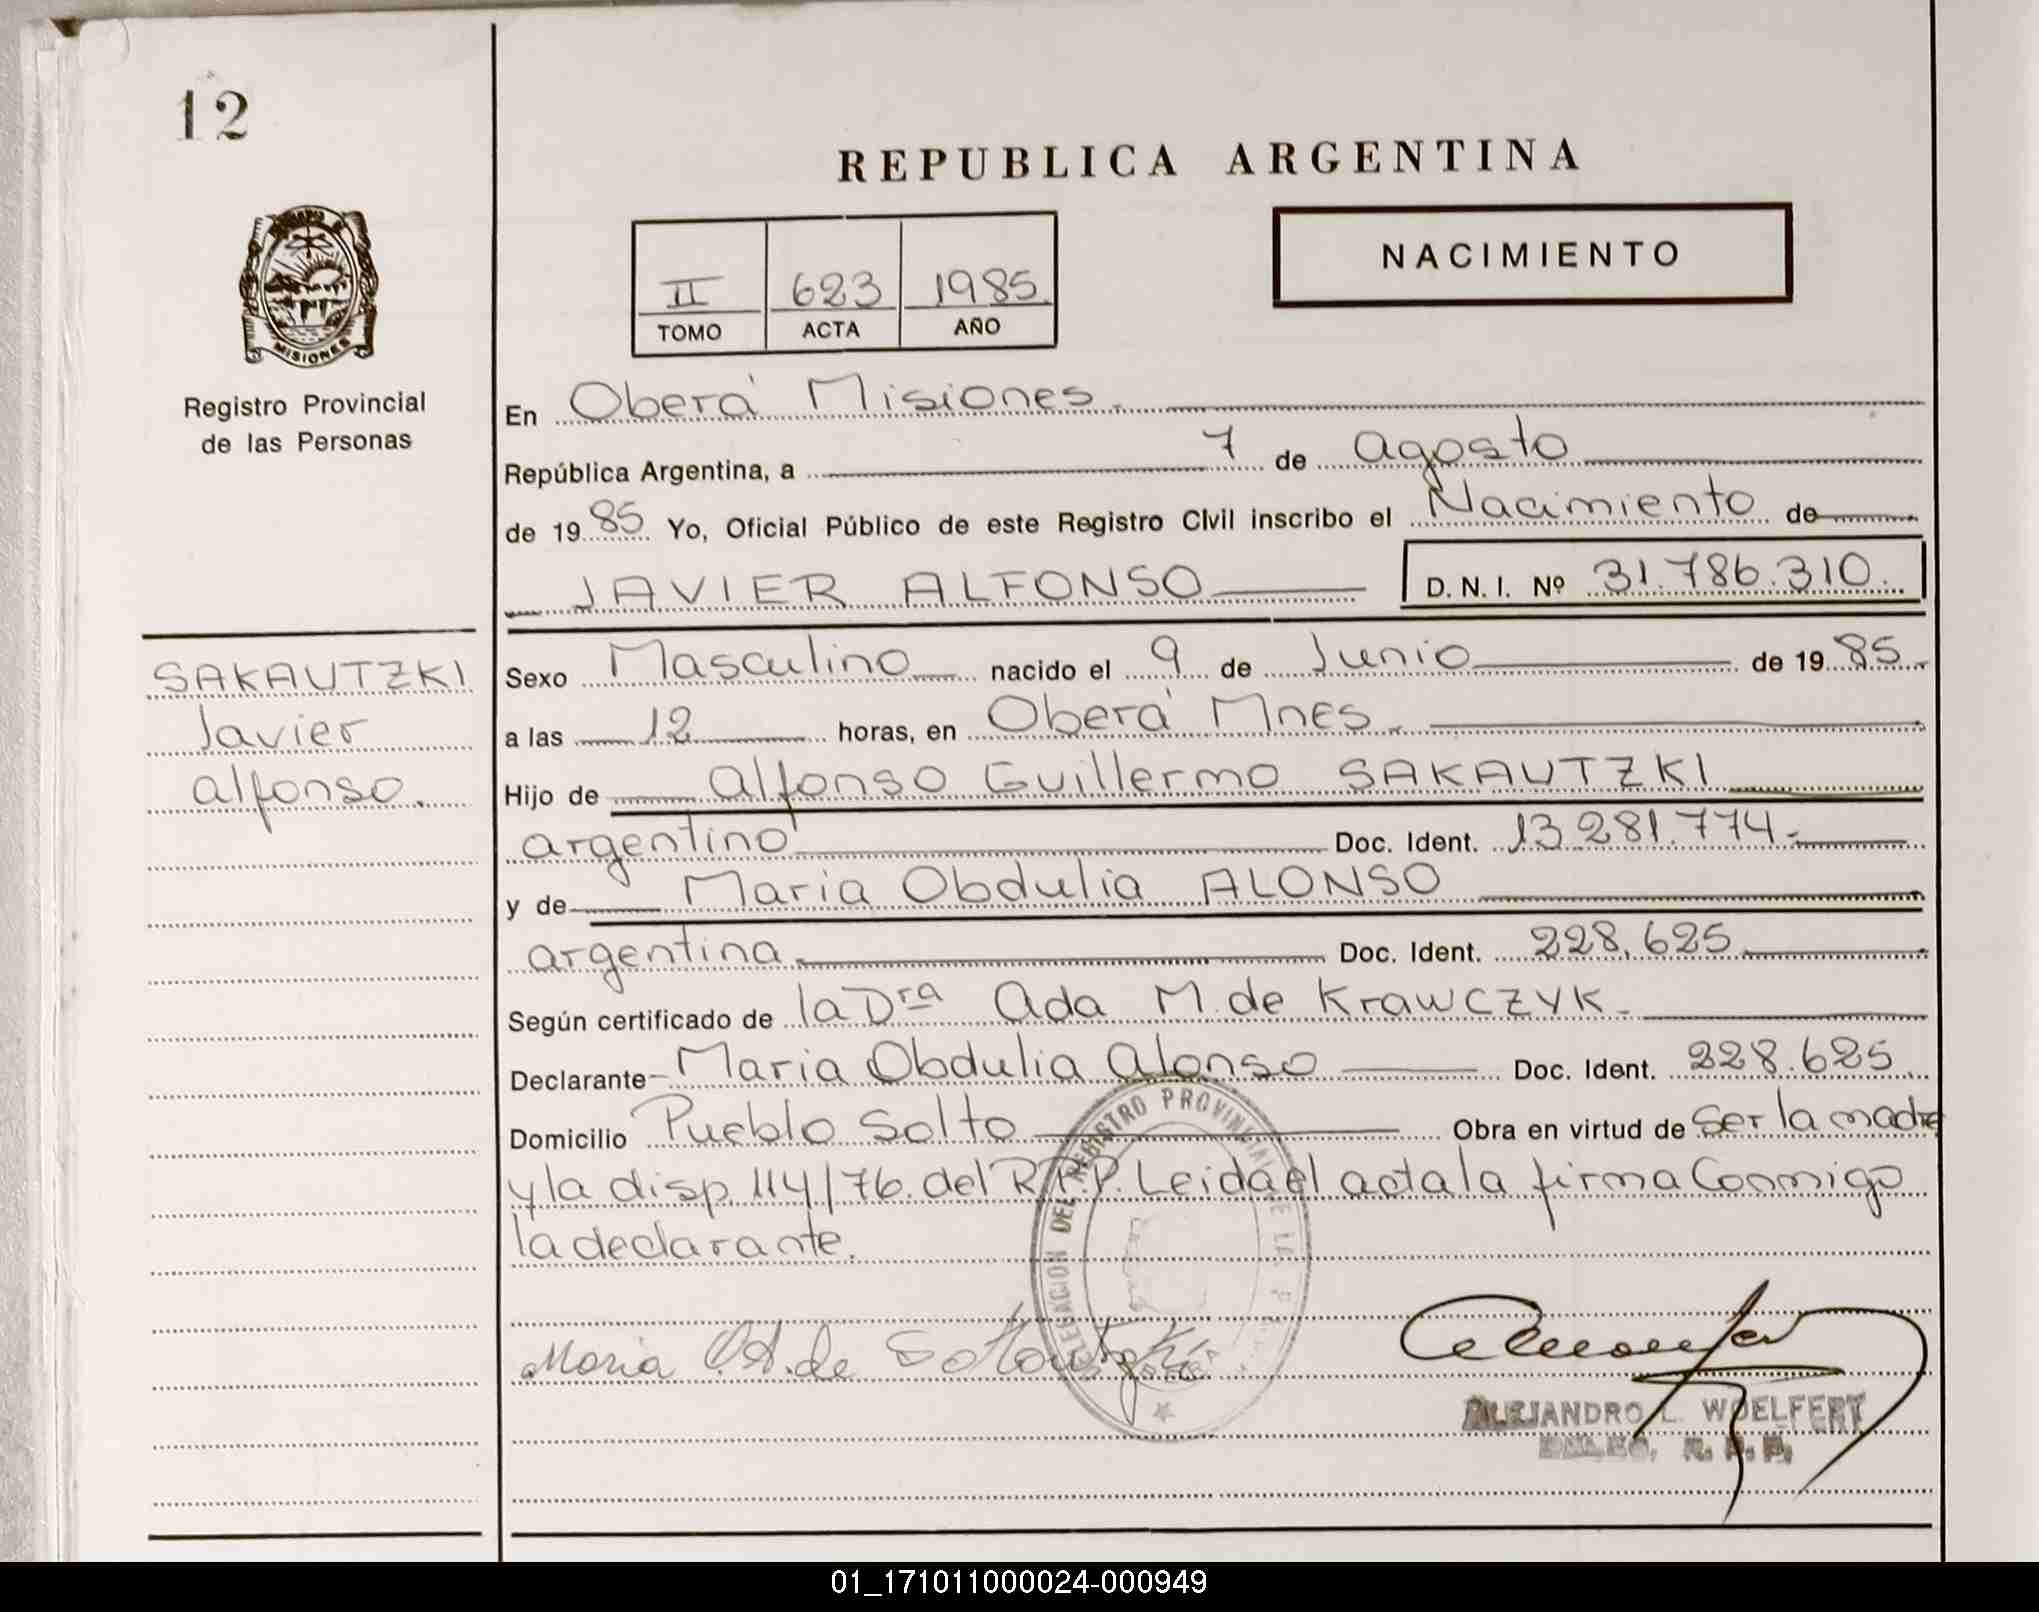 12
REPUBLICA ARGENTINA
NACIMIENTO
II 623 1985
TOMO ACTA AÑO
MISIONES
Registro Provincial
de las Personas
En Oberá Misiones
República Argentina, a 7 de Agosto
de 1985 Yo, Oficial Público de este Registro Civil inscribo el Nacimiento de
JAVIER ALFONSO D. N. I. Nº 31.786.310.
SAKAUTZKI
Javier
Alfonso.
Sexo Masculino nacido el 9 de Junio de 1985
a las 12 horas, en Oberá Mnes.
Hijo de Alfonso Guillermo SAKAUTZKI
argentino Doc. Ident. 13.281.774.-
y de Maria Obdulia ALONSO
argentina. Doc. Ident. 228.625
Según certificado de la Dra Ada M. de Krawczyk.
Declarante- Maria Obdulia Alonso Doc. Ident. 228.625
Domicilio Pueblo Solto Obra en virtud de Ser la madre
y la disp. 114/76. del R.P.P. Leida el acta la firma Conmigo
la declarante.
DELEGACION DEL REGISTRO PROVINCIAL DE LA
Maria O.A. de
ALEJANDRO L. WOELFERT
R. P. P.
01_171011000024-000949